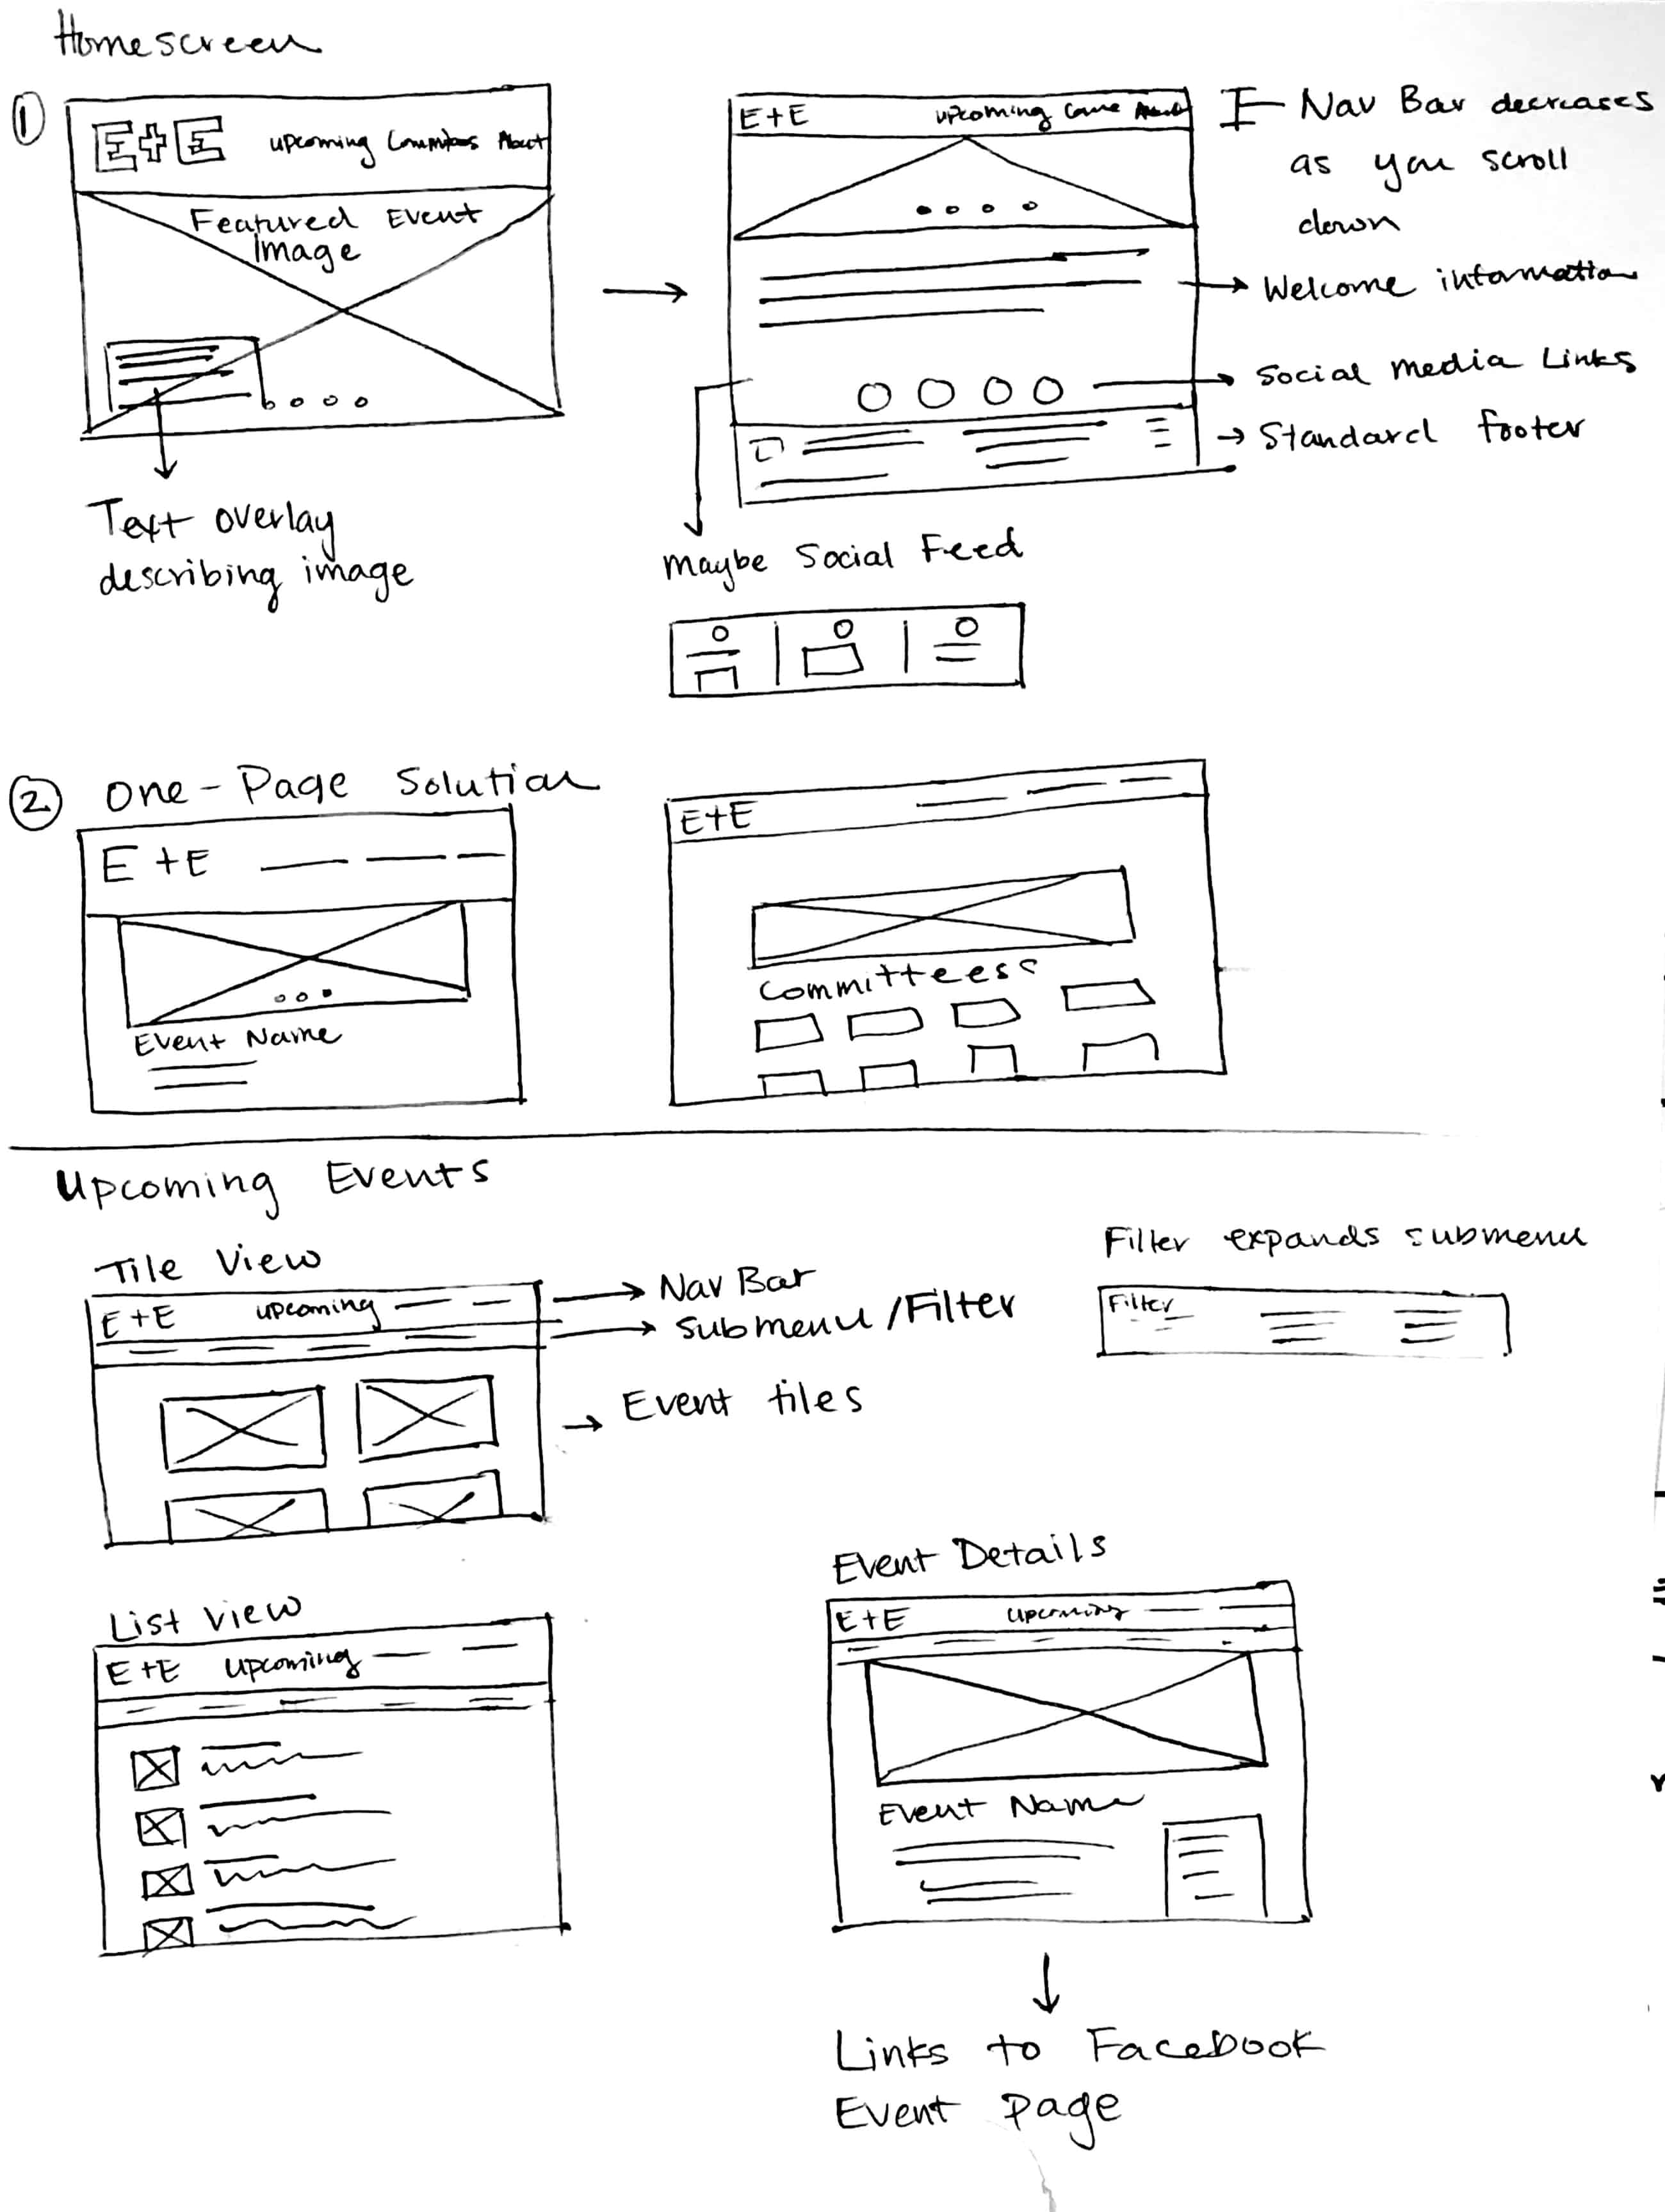 Homescreen
①
E+E upcoming Committees About
Featured Event
Image
Text overlay
describing image
E+E upcoming
Nav Bar decreases
as you scroll
down
Welcome information
Social media Links
Standard footer
Maybe Social Feed
② One-Page Solution
E+E
Event Name
E+E
Committees
Upcoming Events
Tile View
E+E upcoming
Nav Bar
submenu/Filter
Event tiles
Filter expands submenu
Filter
List view
E+E Upcoming
Event Details
E+E upcoming
Event Name
Links to Facebook
Event Page